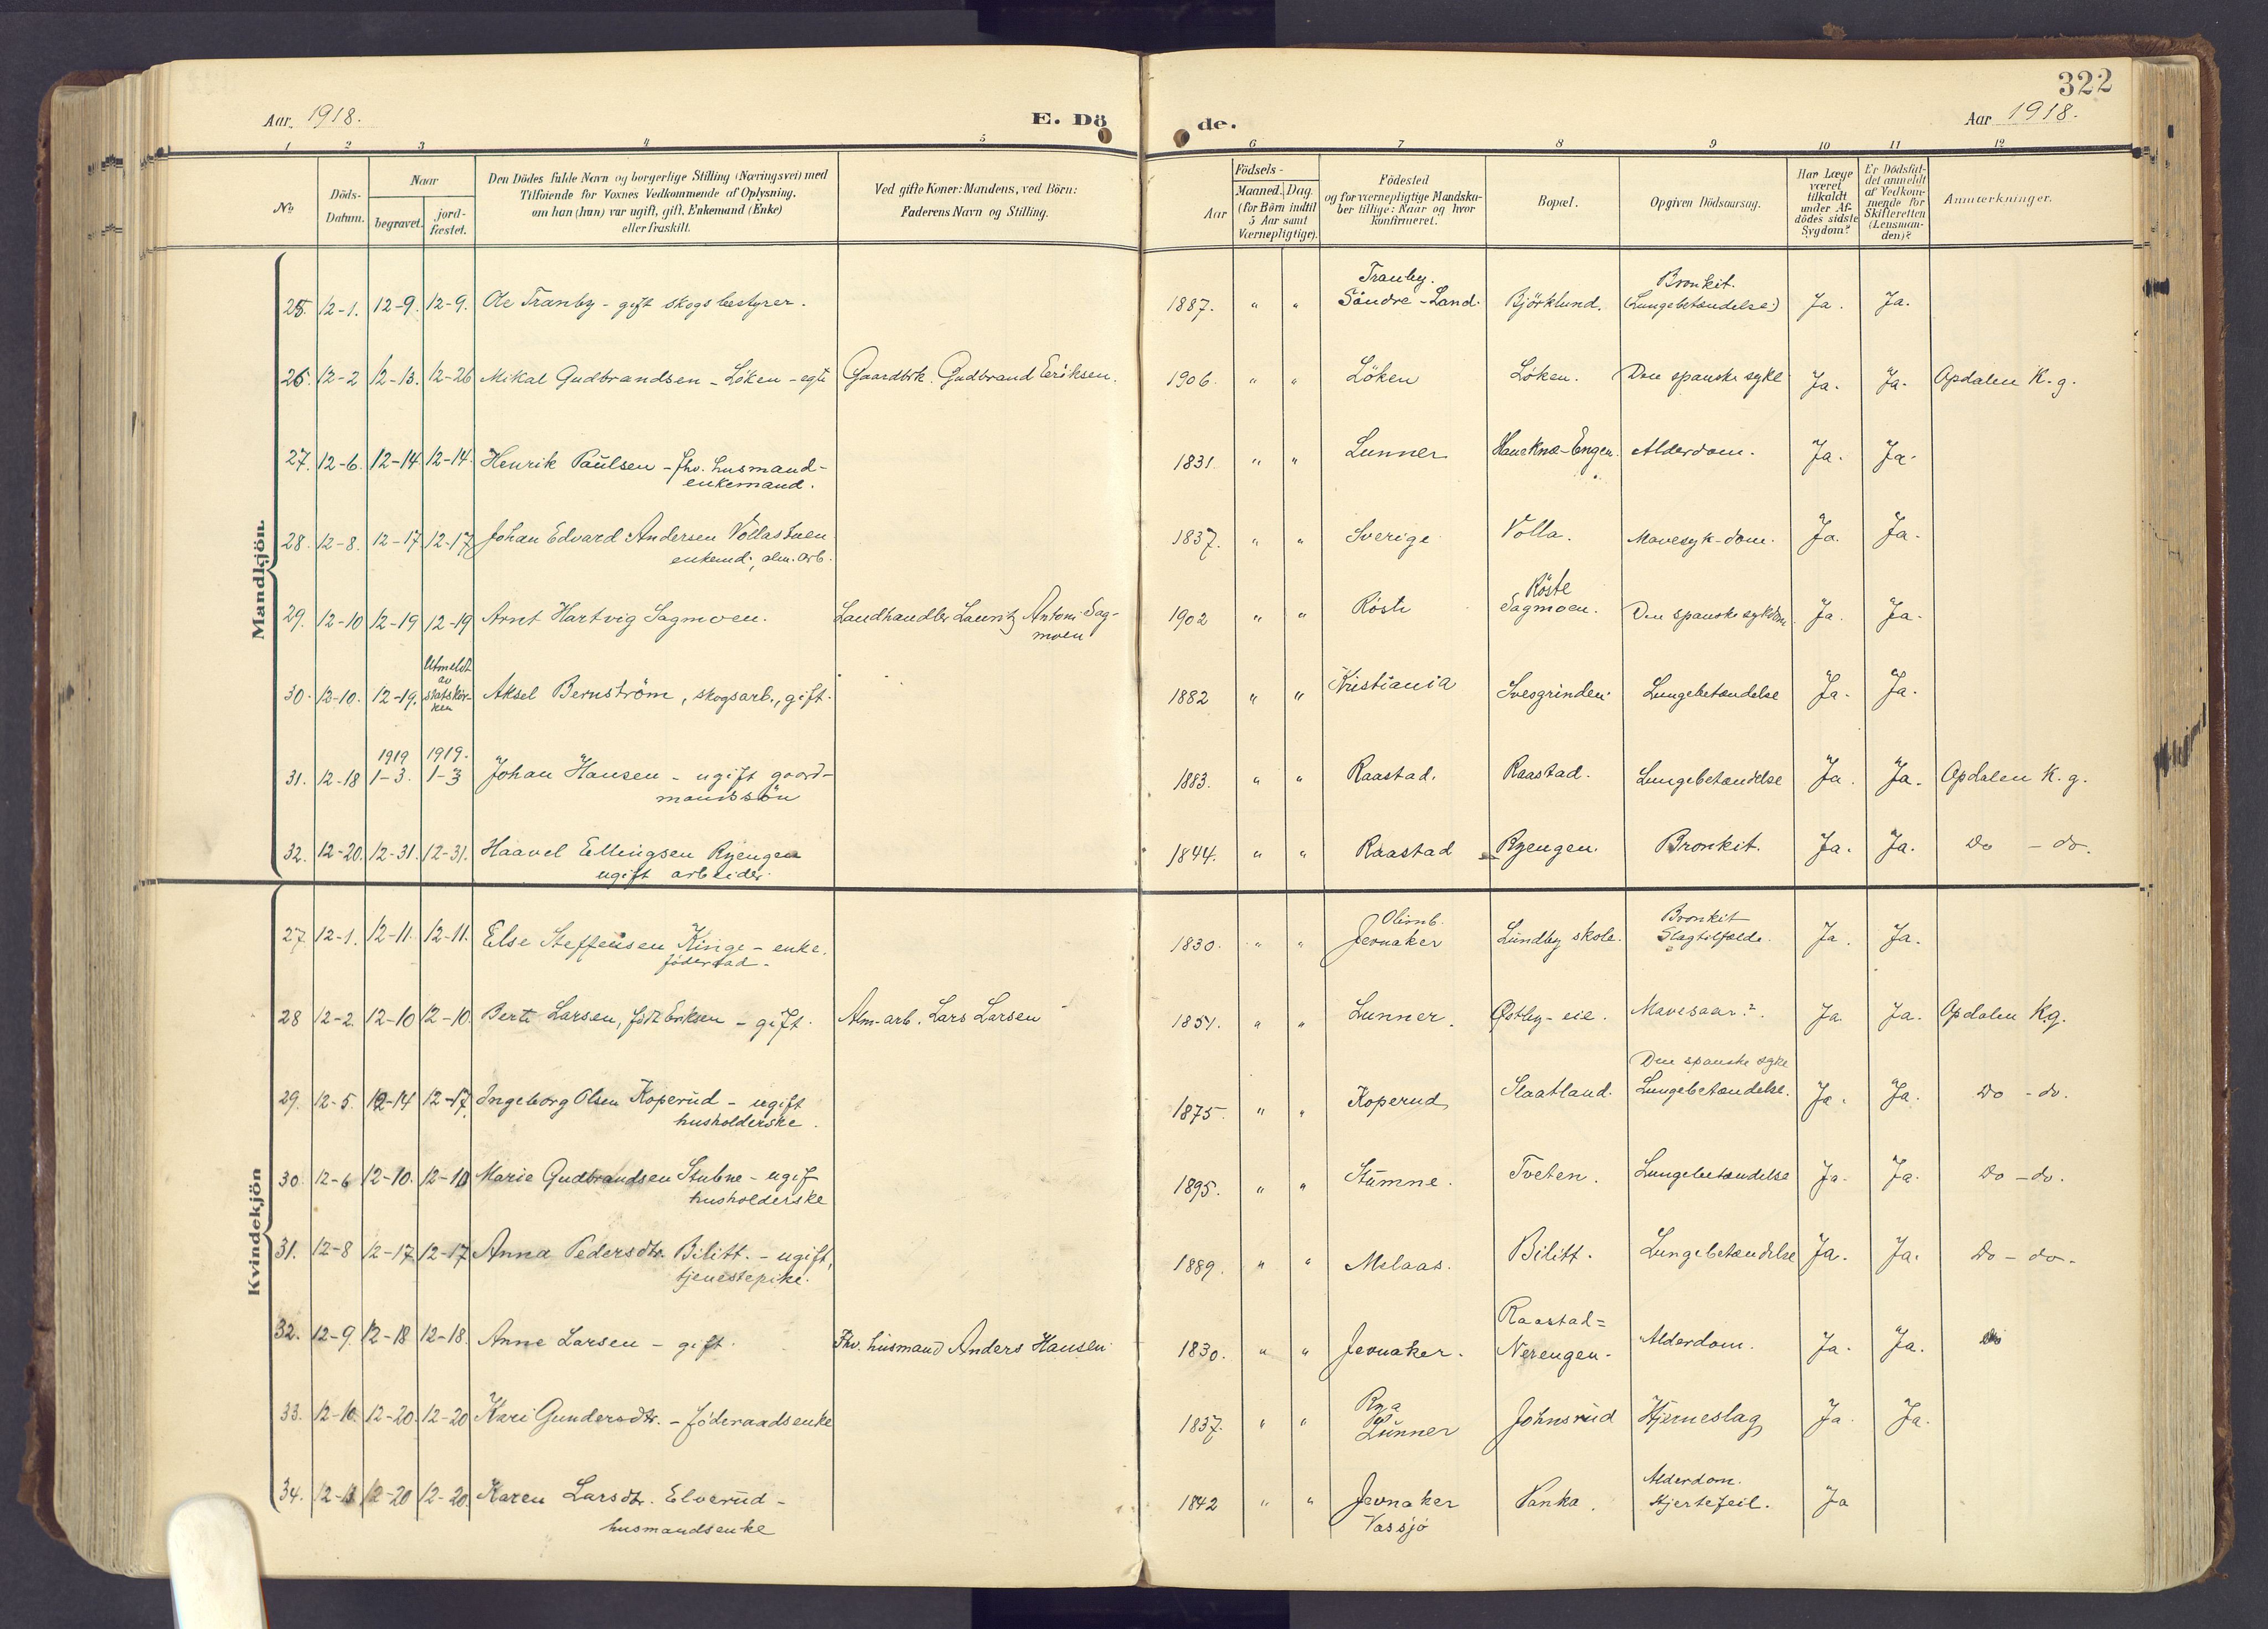 322
Aar 1918.
E. Dö de.
Aar 1918.
1 2 3 4 5 6 7 8 9 10 11 12
No
Döds-Datum.
Naar
begravet.
jord-fæstet.
Den Dödes fulde Navn og borgerlige Stilling (Næringsvei) med
Tilföiende for Voxnes Vedkommende af Oplysning,
om han (hun) var ugift, gift, Enkemand (Enke)
eller fraskilt.
Ved gifte Koner: Mandens, ved Börn:
Faderens Navn og Stilling.
Födsels-
Aar
Maaned. Dag.
(for Börn indtil
5 Aar samt
Værnepligtige).
Födested
og for værnepligtige Mandska-
ber tillige: Naar og hvor
konfirmeret.
Bopæl.
Opgiven Dödsaarsag.
Har Læge
været
tilkaldt
under Af-
dödes sidste
Sygdom?
Er Dödsfal-
det anmeldt
af Vedkom-
mende for
Skifteretten
(Lensman-
den)?
Anmærkninger.
Mandkjön.
25. 12-1. 12-9. 12-9. Ole Tranby - gift skogsbestyrer. 1887. " " Tranby. Söndre-Land. Björklund. Bronkit. (Lungebetændelse) Ja. Ja.
26. 12-2 12-13. 12-26 Mikal Gudbrandsen - Löken - egte Gaardbrk. Gudbrand Eriksen. 1906. " " Löken Löken. Den spanske syke Ja. Ja. Opdalen K.g.
27. 12-6. 12-14 12-14. Henrik Paulsen - fhv. husmand-
enkemand. 1831. " " Lunner Alderdom. Ja. Ja.
28. 12-8. 12-17 12-17 Johan Edvard Andersen Vollastuen
enkemd., alm. arb. 1837. " " Sverige Volla. Mavesyk-dom. Ja. Ja.
29. 12-10 12-19 12-19 Arnt Hartvig Sagmoen. Landhandler Lauritz Antoni Sag-
moen 1902 " " Röste Röste Sagmoen. Den spanske sykdom. Ja. Ja.
30. 12-10. 12-19. Utmeldt av statskir-ken Aksel Bernström, skogsarb., gift. 1882 " " Kristiania Svesgrinden. Lungebetændelse Ja. Ja.
31. 12-18 1919 1-3. 1919. 1-3 Johan Hansen - ugift gaard-
mandssön 1883. " " Raastad. Raastad. Lungebetændelse Ja. Ja. Opdalen K.g.
32. 12-20. 12-31. 12-31. Haavel Ellingsen Ryengen
ugift arbeider. 1844. " " Raastad Ryengen. Bronkit. Ja. Ja. Do - do.
Kvindekjön
27. 12-1. 12-11. 12-11. Else Steffensen Kinge - enke.
föderaad. 1830. " " Jevnaker Lundby skole. Bronkit Slagtilfælde. Ja. Ja.
28 12-2. 12-10 12-10. Berte Larsen, född Eriksen - gift. Alm-arb. Lars Larsen 1851. " " Lunner. Østby-eie. Mavesaar?. Ja. Ja. Opdalen Kg.
29. 12-5. 12-14 12-17. Ingeborg Olsen Koperud - ugift
husholderske. 1875. " " Koperud Slaatland. Den spanske syke Lungebetændelse. Ja. Ja. Do - do.
30. 12-6 12-10. 12-10 Marie Gudbrandsen Stubne - ugif
husholderske 1895. " " Stumne. Tveten. Lungebetændelse Ja. Ja. Do - do.
31. 12-8 12-17 12-17 Anna Pedersdtr. Bilitt. - ugift,
tjenestepike. 1889. " " Melaas. Bilitt. Lungebetændelse Ja. Ja. Do - do.
32. 12-9. 12-18 12-18. Anne Larsen - gift. Fhv. husmand Anders Hansen 1830. " " Jevnaker. Raastad= Nerengen. Alderdom. Ja. Ja.
33. 12-10. 12-20. 12-20 Kari Gundersdtr. - föderaadsenke 1837. " " Rya Lunner Johnsrud Hjerneslag Ja. Ja.
34. 12-20 12-20. Karen Larsdtr. Elverud -
husmandsenke 1842 " " Jevnaker Vassjö Vanka. Alderdom. Hjertefeil. Ja